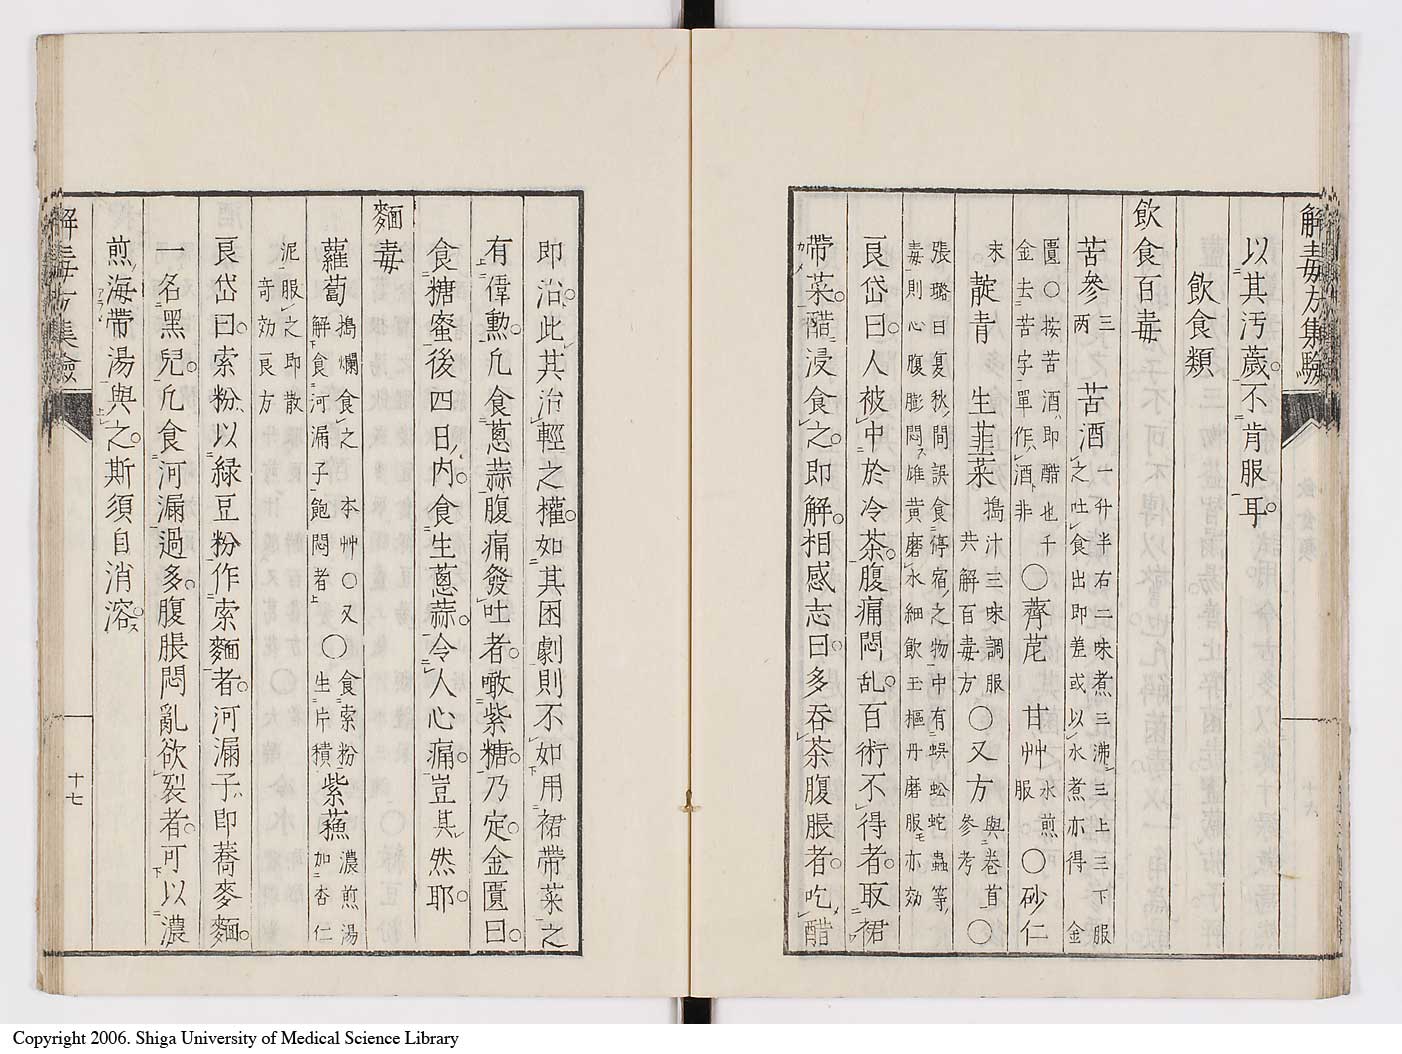 解毒方集驗
以其汚薉不肯服耳
飲食類
飲食百毒
苦參三兩 苦酒一升半右二味煮三沸三上三下服之吐食出即差或以水煮亦得 金
匱〇按苦酒即醋也千金去苦字單作酒非 〇薺苨 甘艸服水煎 〇砂仁
末 靛青 生韮菜搗汁三味調服共解百毒方 〇又方與卷首參考 〇
張璐曰夏秋間誤食停宿之物中有蜈蚣蛇蟲等毒則心腹膨悶雄黄磨水細飲玉樞丹磨服亦効
艮岱曰人被中於冷茶腹痛悶乱百術不得者取裙
帶菜醋浸食之即解相感志曰多呑茶腹脹者吃醋
即治此其治輕之權如其困劇則不如用裙帶菜之
有偉勳凢食蔥蒜腹痛發吐者噉紫糖乃定金匱曰
食糖蜜後四日内食生蔥蒜令人心痛豈其然耶
麵毒
蘿蔔搗爛食之 本艸〇又解食河漏子飽悶者 〇食索粉生片積 紫蘓濃煎湯加杏仁
泥服之即散 奇効良方
艮岱曰索粉以緑豆粉作索麵者河漏子即蕎麥麵
一名黑兒凢食河漏過多腹脹悶亂欲裂者可以濃
煎海帶湯與之斯須自消溶
解毒方集驗
十七
Copyright 2006. Shiga University of Medical Science Library